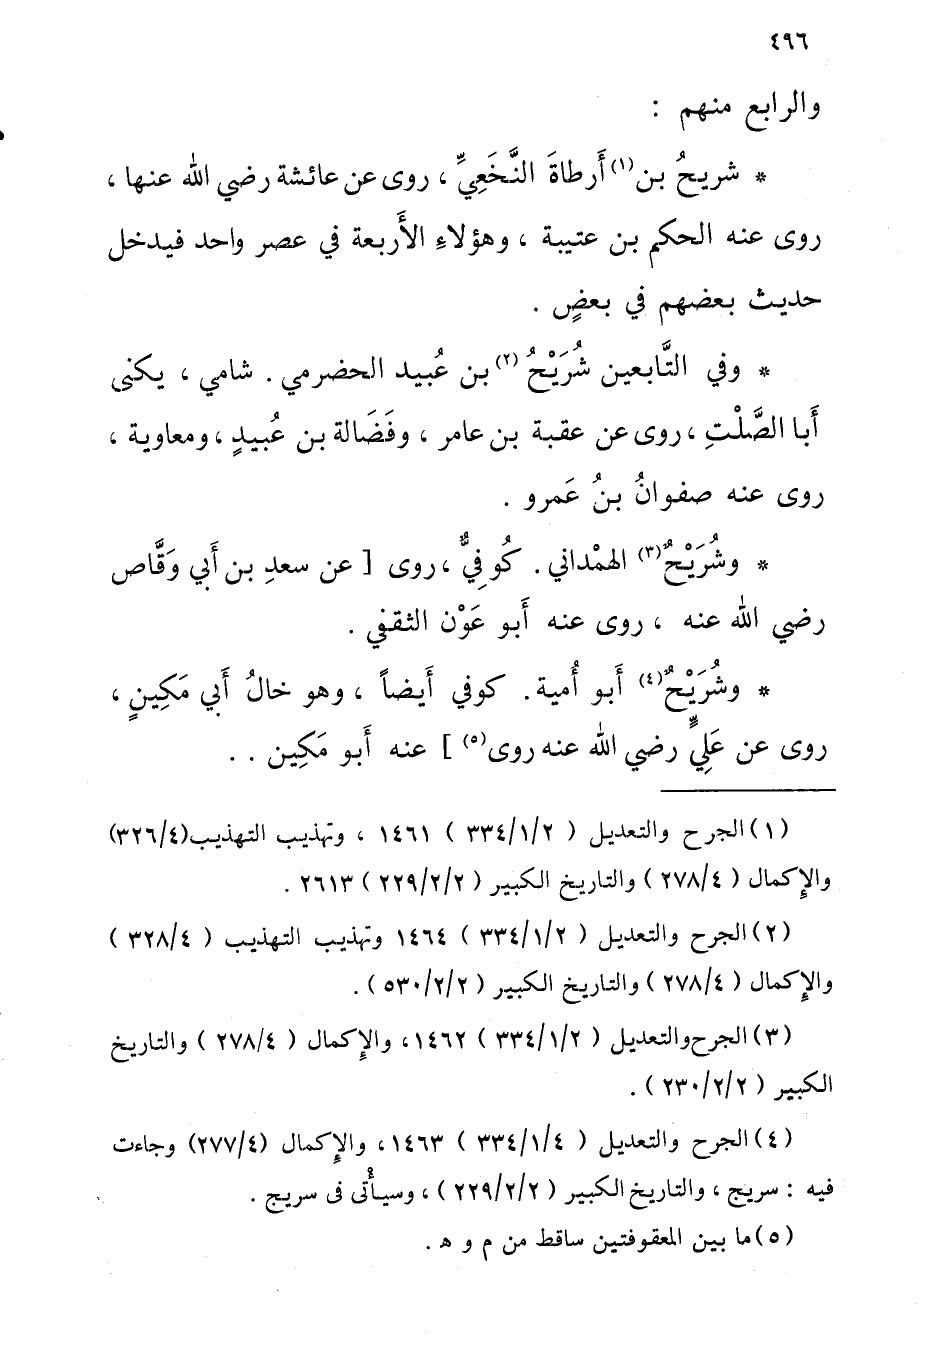 ٤٩٦
والرابع منهم :
* شريحُ بن(١) أَرطاةَ النَّخَعِيِّ ، روى عن عائشة رضي الله عنها ،
روى عنه الحكم بن عتيبة ، وهؤلاءِ الأَربعة في عصر واحد فيدخل
حديث بعضهم في بعضٍ .
* وفي التَّابعين شُرَيْحُ(٢) بن عُبيد الحضرمي . شامي ، يكنى
أَبا الصَّلْتِ ، روى عن عقبة بن عامر ، وفَضَالة بن عُبيدٍ ، ومعاوية ،
روى عنه صفوانُ بنُ عَمرو .
* وشُرَيْحٌ(٣) الهمْداني . كُوفِيٌّ ، روى [ عن سعدِ بن أَبي وَقَّاص
رضي الله عنه ، روى عنه أَبو عَوْن الثقفي .
* وشُرَيْحٌ(٤) أَبو أُمية . كوفي أَيضاً ، وهو خالُ أَبي مَكِينٍ ,
روى عن عَلِيٍّ رضي الله عنه روى(٥) ] عنه أَبو مَكِين . .
(١) الجرح والتعديل ( ٣٣٤/١/٢ ) ١٤٦١ ، وتهذيب التهذيب(٣٢٦/٤)
والإكمال ( ٢٧٨/٤ ) والتاريخ الكبير ( ٢٢٩/٢/٢ ) ٢٦١٣ .
(٢) الجرح والتعديل ( ٣٣٤/١/٢ ) ١٤٦٤ وتهذيب التهذيب ( ٣٢٨/٤ )
والإكمال ( ٢٧٨/٤ ) والتاريخ الكبير ( ٥٣٠/٢/٢ ) .
(٣) الجرح والتعديل ( ٣٣٤/١/٢ ) ١٤٦٢ ، والإكمال ( ٢٧٨/٤ ) والتاريخ
الكبير ( ٢٣٠/٢/٢ ) .
(٤) الجرح والتعديل ( ٣٣٤/١/٤ ) ١٤٦٣ ، والإكمال (٢٧٧/٤) وجاءت
فيه : سريج ، والتاريخ الكبير ( ٢٢٩/٢/٢ ) ، وسيأْتى فى سريج .
(٥) ما بين المعقوفتين ساقط من م و ه .